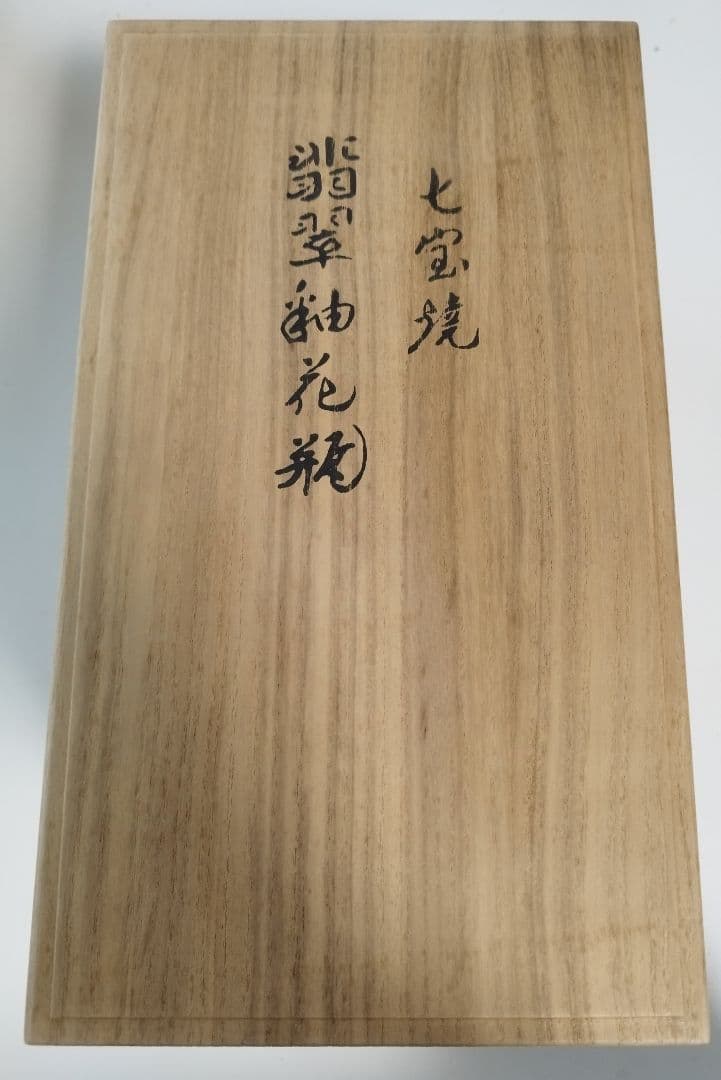 七宝焼
翡翠釉花瓶